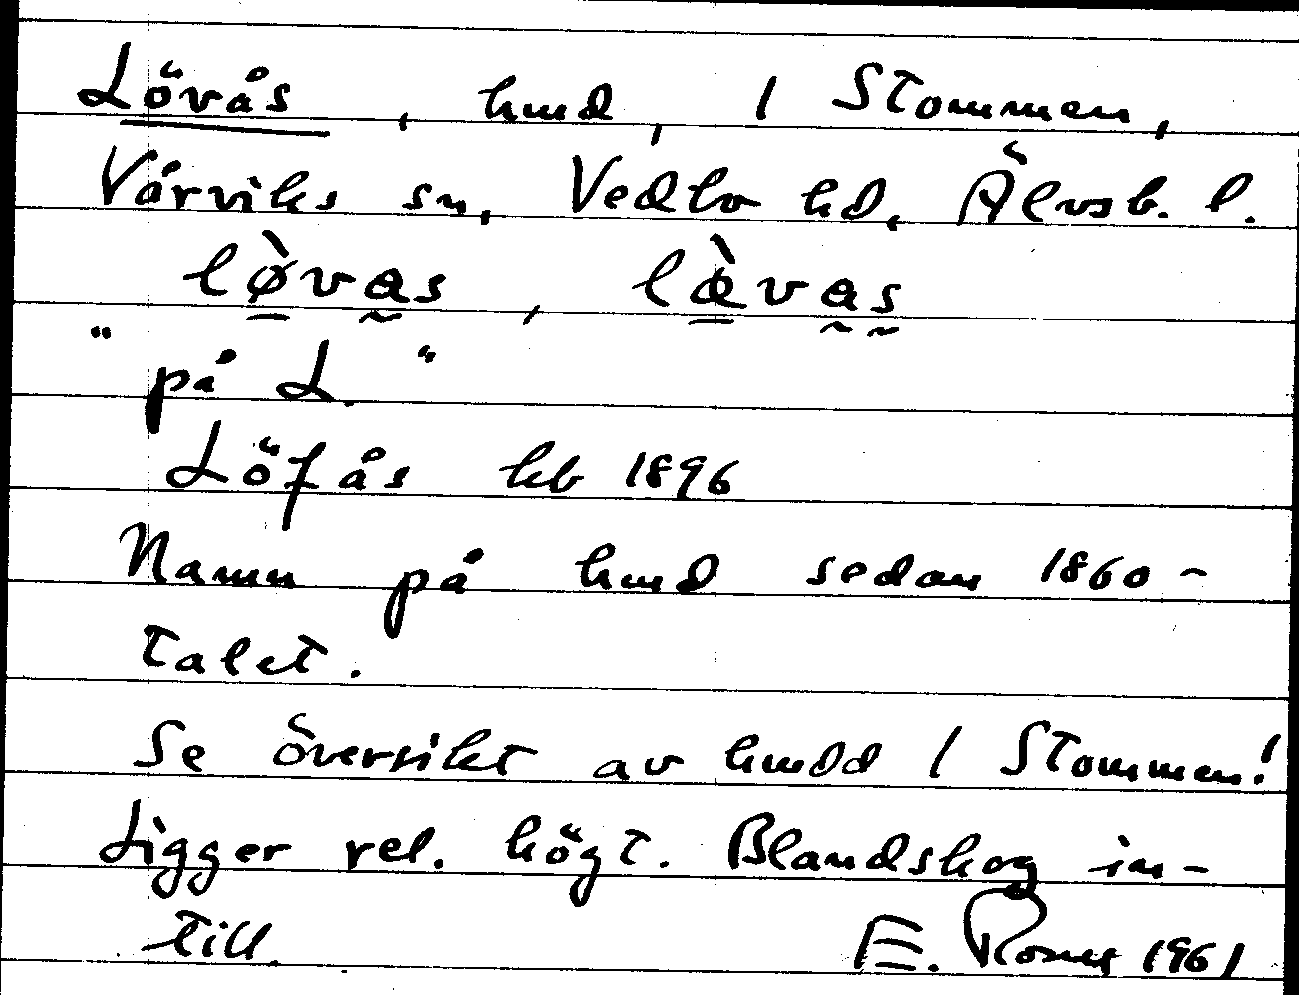 Lövås, hmd, / Stommen,
Vårviks sn, Vedbo hd, Älvsb. l.
lø̀vas, læ̀vas
"på L."
Löfås hb 1896
Namn på hmd sedan 1860-
talet.
Se översikt av hmdd / Stommen!
Ligger rel. högt. Blandskog in-
till. E. 1961